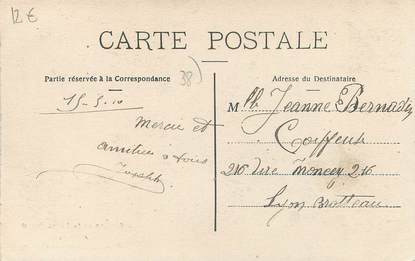 12 €
CARTE POSTALE
Partie réservée à la Correspondance
38
Adresse du Destinataire
15-5-10
Merci et
amitiés à tous
M Jeanne Bernadin
Coiffeur
216 rue Moncey 216
Lyon Brotteau